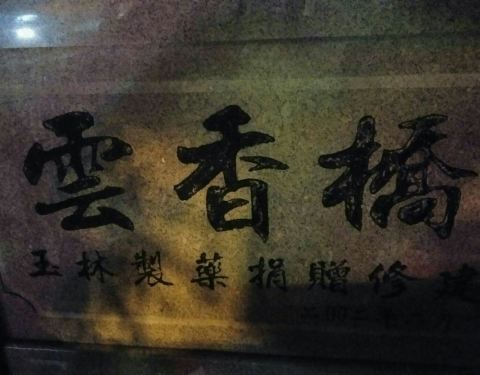 雲香橋
玉林製藥捐贈修建
二00二年